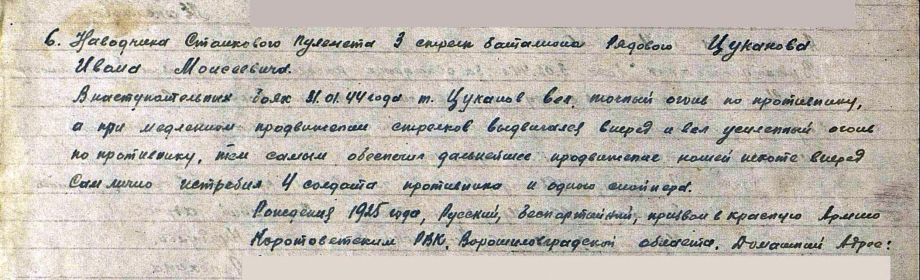 6. Наводчика Станкового пулемета 3 стрелк батальона Рядового Цуканова
Ивана Моисеевича.
В наступательных боях 31.01.44 года т. Цуканов вел точный огонь по противнику,
а при медленном продвижении стрелков выдвигался вперед и вел усиленный огонь
по противнику, тем самым обеспечил дальнейшее продвижение нашей пехоте вперед
Сам лично истребил 4 солдата противника и одного снайпера.
Рождения 1925 года, Русский, беспартийный, призван в красную Армию
РВК, Ворошиловградской области. Домашний Адрес: